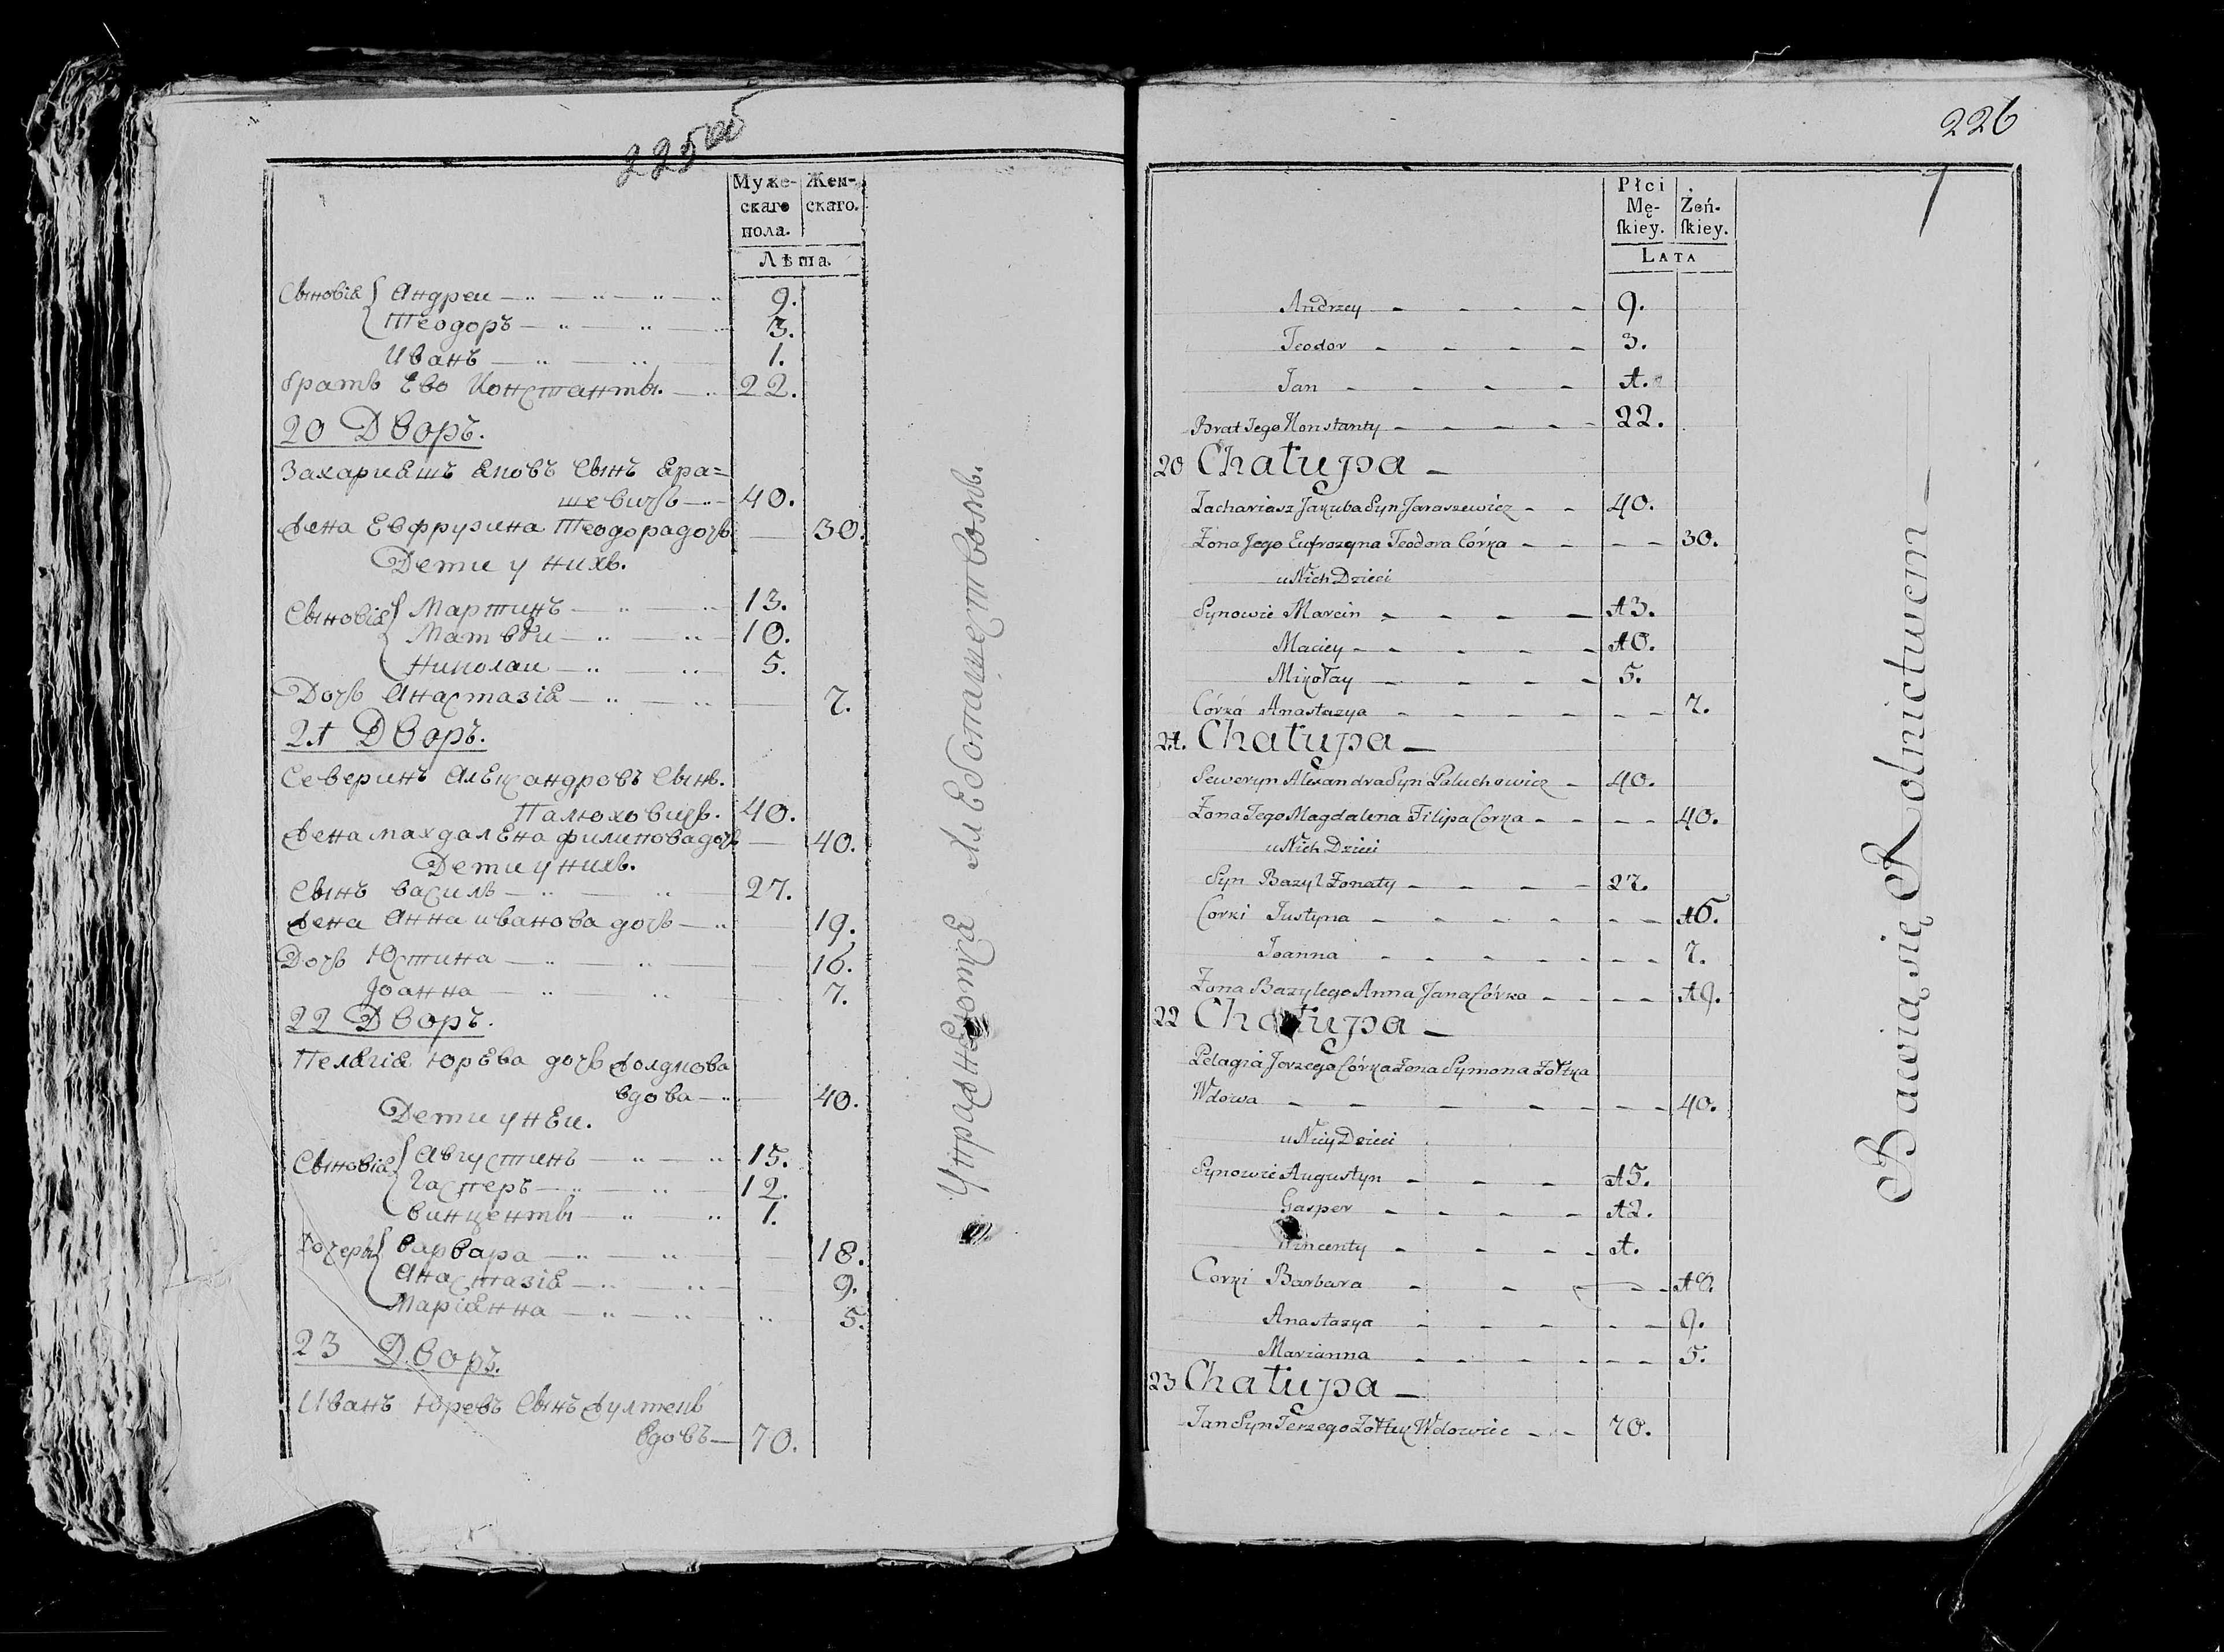 225об
Муже-
скаго
пола.
Жен-
скаго.
Лѣта.
Сыновія Андреи 9.
Теодоръ 3.
Иванъ 1.
братъ Ево Константы. 22.
20 Дворъ.
Захаріяшъ Яковъ Сынъ Яра=
шевичь 40.
Жена Евфрузина Теодорадочь 30.
Дети у нихъ.
Сыновія Мартинъ 13.
Матвѣи 10.
Николаи 5.
Дочь Анастазія 7.
21 Дворъ.
Северинъ Александровъ Сынъ.
Палюховичь. 40.
Жена махдалена филиповадочь 40.
Дети у нихъ.
Сынъ василь 27.
Жена Анна иванова дочь 19.
Дочь Юстина 16.
Іоанна 7.
22 Дворъ.
Пелагія Юрьева дочь Жолдкова
вдова 40.
Дети у неи.
Сыновія Августинъ 15.
Гасперъ 12.
винценты 1.
Дочеры варвара 18.
Анастазія 9.
Маріянна 5.
23 Дворъ.
Иванъ Юревъ Сынъ
вдовъ 70.
Упражняются Хлебопашествомъ.
226
Płci
Mę-
ſkiey.
Żeń-
ſkiey.
LATA
Andrzey 9.
Teodor 3.
Jan 1.
Brat Jego Konstanty 22.
20 Chałupa
Zachariasz Jakuba Syn Jaraszewicz 40.
Żona Jego Eufrozyna Teodora Córka 30.
u Nich Dzieci
Synowie Marcin 13.
Maciey 10.
Mikołay 5.
Córka Anastazya 7.
21. Chałupa
Seweryn Alexandra Syn Paluchowicz 40.
Żona Jego Magdalena Filipa Corka 40.
u Nich Dzieci
Syn Bazyl Żonaty 27.
Corki Justyna 16.
Joanna 7.
Żona Bazylego Anna Jana Córka 19.
22 Chałupa
Pelagia Jerzego Córka Żona Symona Żołtka
Wdowa 40.
u Niey Dzieci
Synowie Augustyn 15.
Gasper 12.
Wincenty 1.
Corki Barbara 18.
Anastazya 9.
Marianna 5.
23 Chałupa
Jan Syn Jerzego Wdowiec 70.
Bawią się Rolnictwem